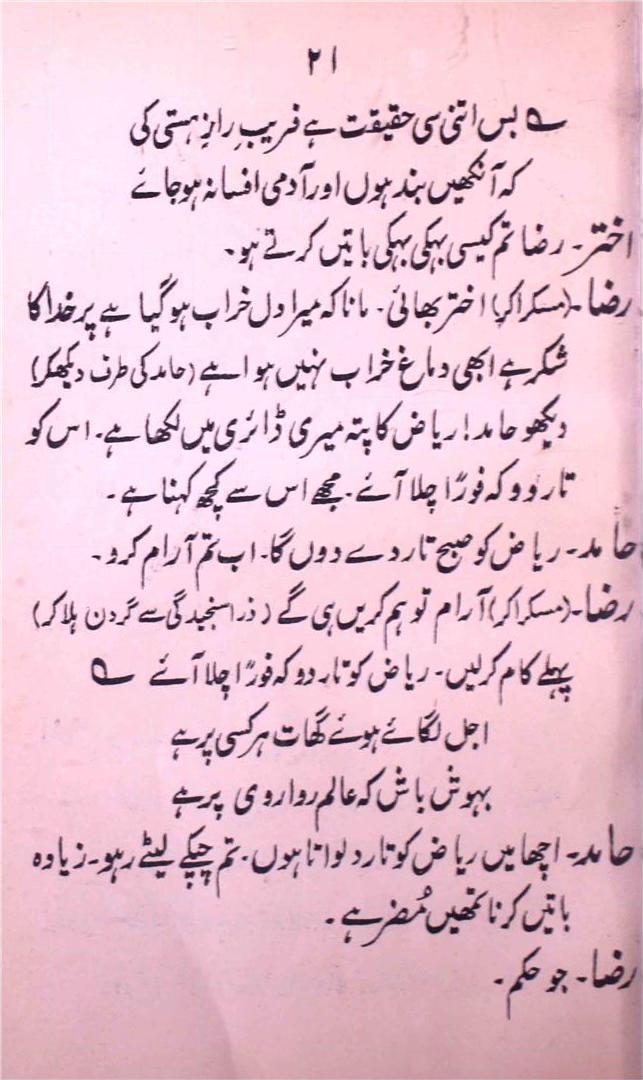 ۲۱
؎ بس اتنی سی حقیقت ہے فریبِ رازِ ہستی کی
کہ آنکھیں بند ہوں اور آدمی افسانہ ہوجائے
اختر۔ رضا تم کیسی بہکی بہکی باتیں کرتے ہو۔
رضا۔ (مسکراکر) اختر بھائی۔ مانا کہ میرا دل خراب ہوگیا ہے پر خدا کا
شکر ہے ابھی دماغ خراب نہیں ہوا ہے (حامد کی طرف دیکھکر)
دیکھو حامد! ریاض کا پتہ میری ڈائری میں لکھا ہے۔ اس کو
تار دو کہ فورًا چلا آئے۔ مجھے اس سے کچھ کہنا ہے۔
حامد۔ ریاض کو صبح تار دے دوں گا۔ اب تم آرام کرو۔
رضا۔ (مسکراکر) آرام تو ہم کریں ہی گے (ذرا سنجیدگی سے گردن ہلاکر)
پہلے کام کرلیں۔ ریاض کو تار دو کہ فورًا چلا آئے ؎
اجل لگائے ہوئے گھات ہر کسی پر ہے
بہوش باش کہ عالم رواروی پر ہے
حامد۔ اچھا میں ریاض کو تار دلواتا ہوں۔ تم چپکے لیٹے رہو۔ زیادہ
باتیں کرنا تمھیں مُضر ہے۔
رضا۔ جو حکم۔